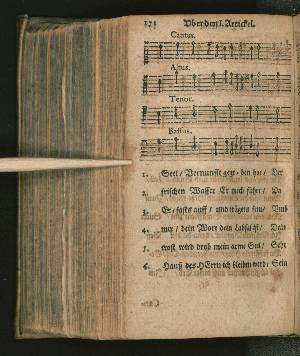 171 Vber den I. Artickel.
Cantus.
Altus.
Tenor.
Bassus.
1. Seel / Vernunfft gege- ben hat / Der
2. frischen Wasser Er mich führt / Da
3. Er / fasts auff / und tragens / Vnd
4. mir / dein Wort dein Labsal ist / Dein
5. trost wird drob mein arme Seel / Sehr
6. Hauß des HErrn ich bleiben werd / Sein